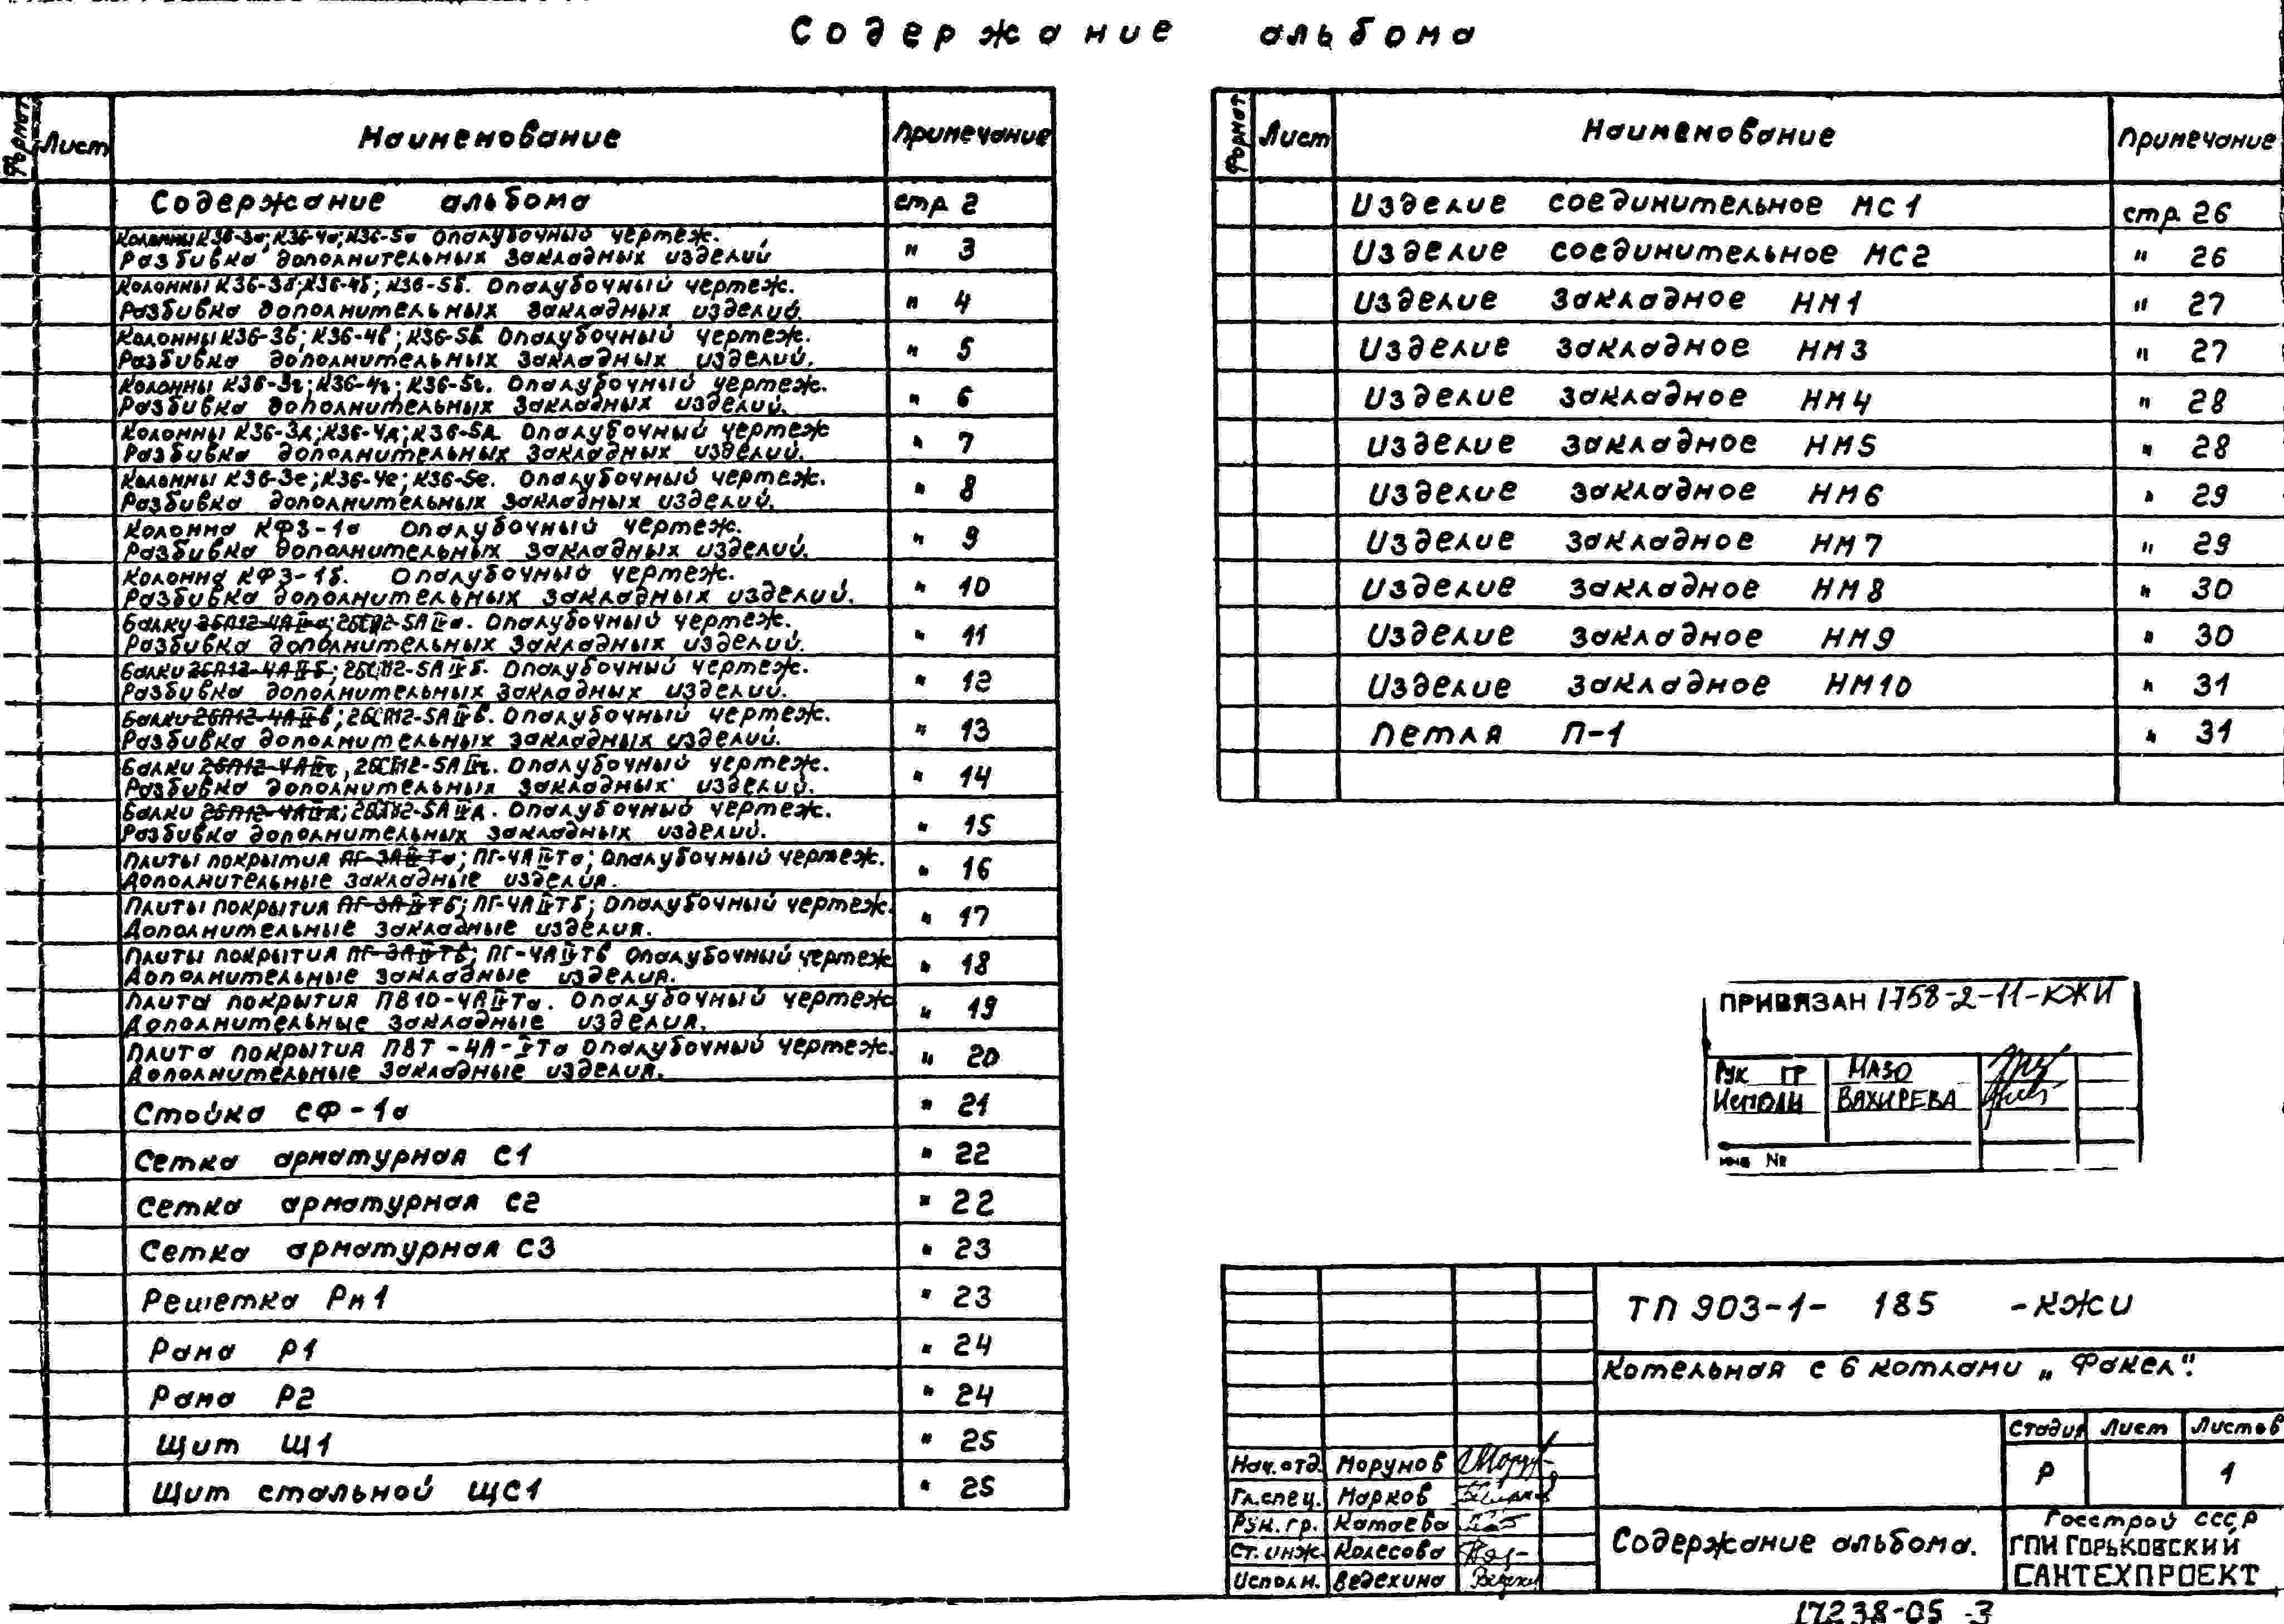 Содержание альбома
Формат Лист Наименование Примечание
Содержание альбома стр 2
Колонны К36-3а; К36-4а; К36-5а Опалубочный чертеж.
Разбивка дополнительных закладных изделий " 3
Колонны К36-3б; К36-4б; К36-5б. Опалубочный чертеж.
Разбивка дополнительных закладных изделий. " 4
Колонны К36-3в; К36-4в; К36-5в Опалубочный чертеж.
Разбивка дополнительных закладных изделий. " 5
Колонны К36-3г; К36-4г; К36-5г. Опалубочный чертеж.
Разбивка дополнительных закладных изделий. " 6
Колонны К36-3д; К36-4д; К36-5д. Опалубочный чертеж
Разбивка дополнительных закладных изделий. " 7
Колонны К36-3е; К36-4е; К36-5е. Опалубочный чертеж.
Разбивка дополнительных закладных изделий. " 8
Колонна КФ3-1а Опалубочный чертеж.
Разбивка дополнительных закладных изделий. " 9
Колонна КФ3-1б. Опалубочный чертеж.
Разбивка дополнительных закладных изделий. " 10
Балки Опалубочный чертеж.
Разбивка дополнительных закладных изделий. " 11
Балки Опалубочный чертеж.
Разбивка дополнительных закладных изделий. " 12
Балки Опалубочный чертеж.
Разбивка дополнительных закладных изделий. " 13
Балки Опалубочный чертеж.
Разбивка дополнительных закладных изделий. " 14
Балки Опалубочный чертеж.
Разбивка дополнительных закладных изделий. " 15
Плиты покрытия ПГ-4АIVТа; Опалубочный чертеж.
Дополнительные закладные изделия. " 16
Плиты покрытия ПГ-4АIVТб; Опалубочный чертеж.
Дополнительные закладные изделия. " 17
Плиты покрытия ПГ-4АIVТв Опалубочный чертеж
Дополнительные закладные изделия. " 18
Плита покрытия Опалубочный чертеж
Дополнительные закладные изделия. " 19
Плита покрытия Опалубочный чертеж.
Дополнительные закладные изделия. " 20
Стойка СФ-1а " 21
Сетка арматурная С1 " 22
Сетка арматурная С2 " 22
Сетка арматурная С3 " 23
Решетка Рн1 " 23
Рама Р1 " 24
Рама Р2 " 24
Щит Щ1 " 25
Щит стальной ЩС1 " 25
Формат Лист Наименование Примечание
Изделие соединительное МС1 стр. 26
Изделие соединительное МС2 " 26
Изделие закладное НМ1 " 27
Изделие закладное НМ3 " 27
Изделие закладное НМ4 " 28
Изделие закладное НМ5 " 28
Изделие закладное НМ6 " 29
Изделие закладное НМ7 " 29
Изделие закладное НМ8 " 30
Изделие закладное НМ9 " 30
Изделие закладное НМ10 " 31
Петля П-1 " 31
ПРИВЯЗАН 1758-2-11-КЖИ
Рук ГР МАЗО
Исполн ВАХИРЕВА
инв №
ТП 903-1- 185 -КЖИ
Котельная с 6 котлами „Факел".
Стадия Лист Листов
Р 1
Нач.отд. Морунов
Гл.спец. Марков
Рук.гр. Катаева
Ст.инж. Колесова
Исполн. Ведехина
Содержание альбома.
Госстрой СССР
ГПИ ГОРЬКОВСКИЙ
САНТЕХПРОЕКТ
17238-05 3